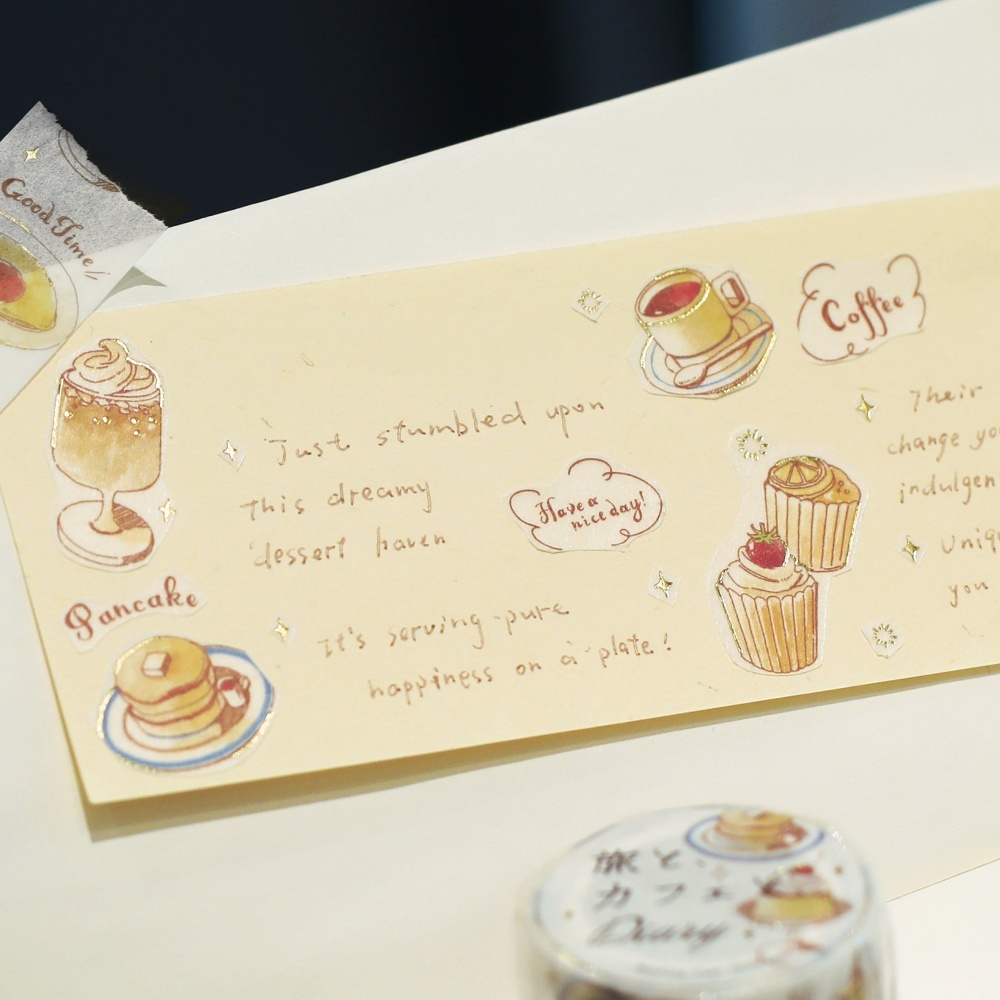 Good Time!
Coffee
Just stumbled upon
this dreamy
dessert haven
Have a
nice day!
Pancake
It's serving pure
happiness on a plate!
Their
change
you
旅と
カフェと
Diary